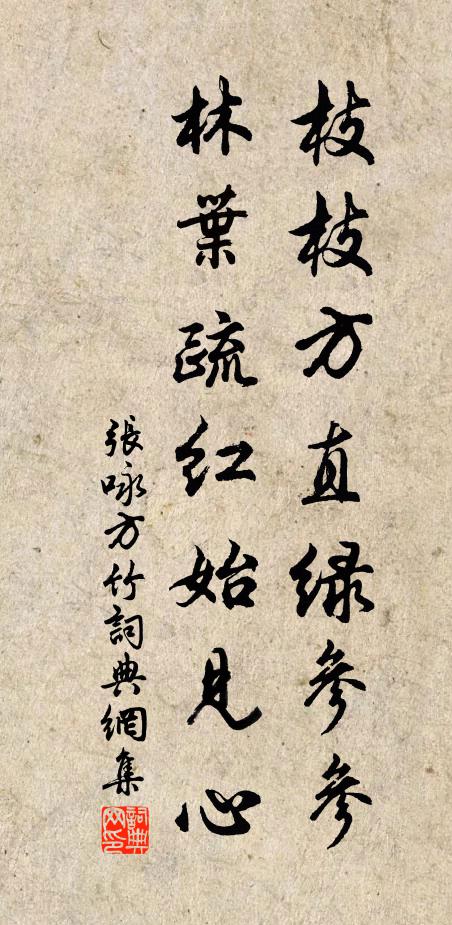 枝枝方直緑參參
林葉疏紅始見心
張咏方竹詞典網集
詞典网印